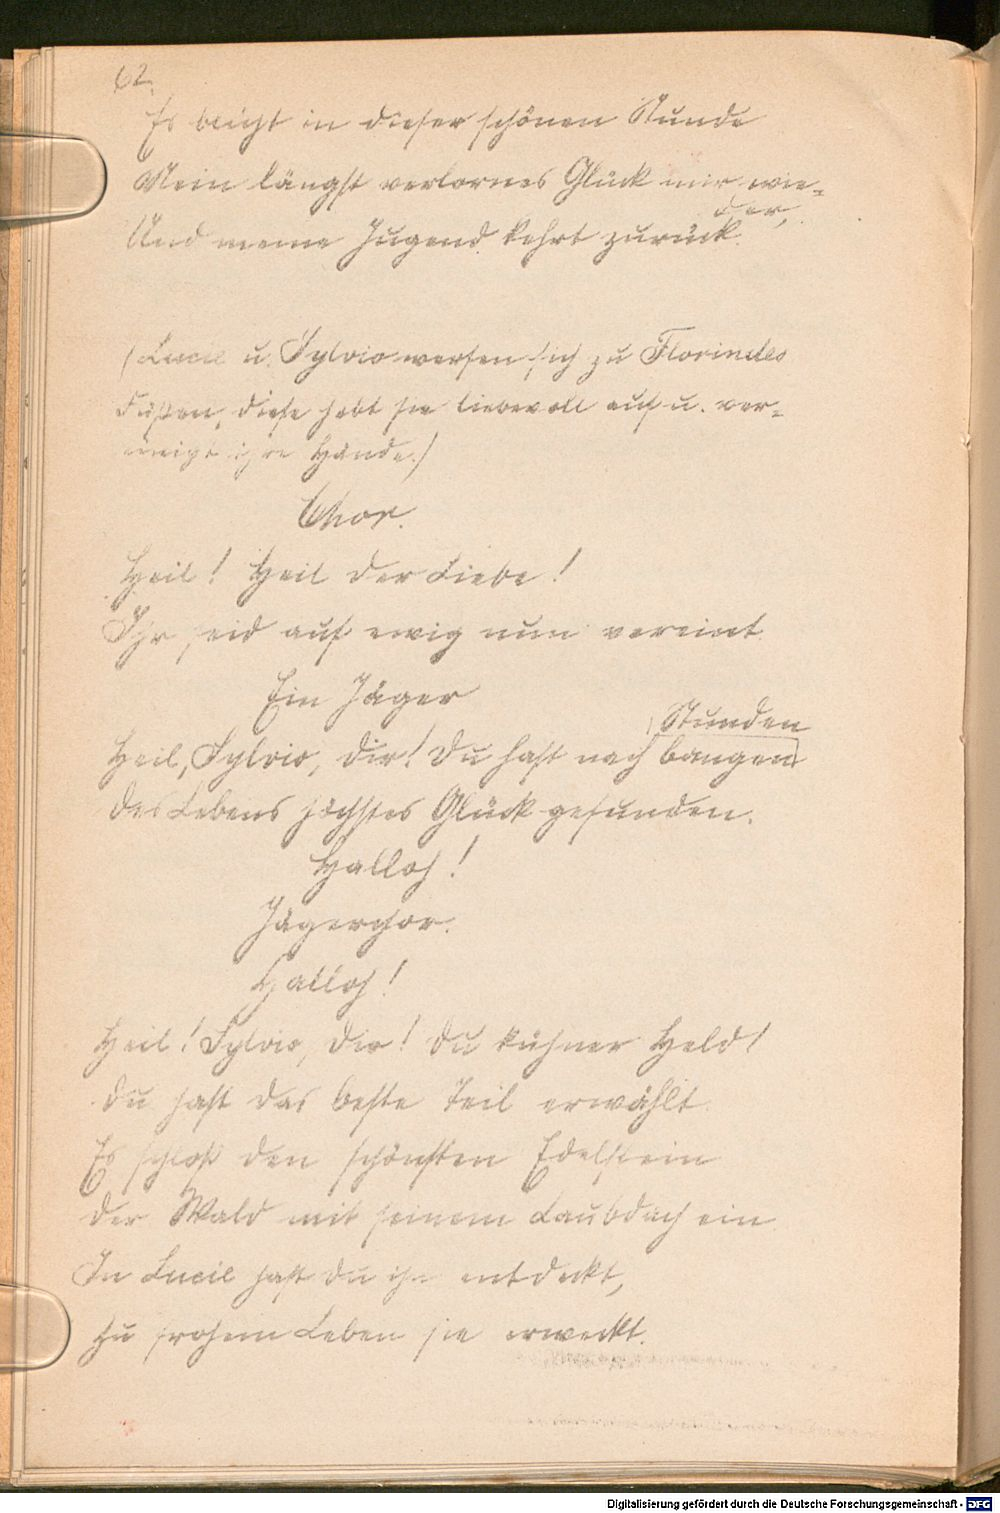 62.
Es beugt in dieser schönen Stunde
Mein längst verlornes Glück mir wie-
der,
Und meine Jugend kehrt zurück.
(Lucil u. Sylvio werfen sich zu Florindes
Füßen, diese hebt sie liebevoll auf u. ver-
einigt ihre Hände.)
Chor.
Heil! Heil der Liebe!
Ihr seid auf ewig nun vereint.
Ein Jäger
Stunden
Heil, Sylvio, dir! Du hast nach bangen
des Lebens höchstes Glück gefunden.
Halloh!
Jägerchor.
Halloh!
Heil! Sylvio, dir! du kühner Held!
du hast das beste Teil erwählt.
Es schloß den schönsten Edelstein
der Wald mit seinem Laubdach ein
In Lucil hast du ihn entdeckt,
zu frohem Leben sie erweckt.
Digitalisierung gefördert durch die Deutsche Forschungsgemeinschaft - DFG